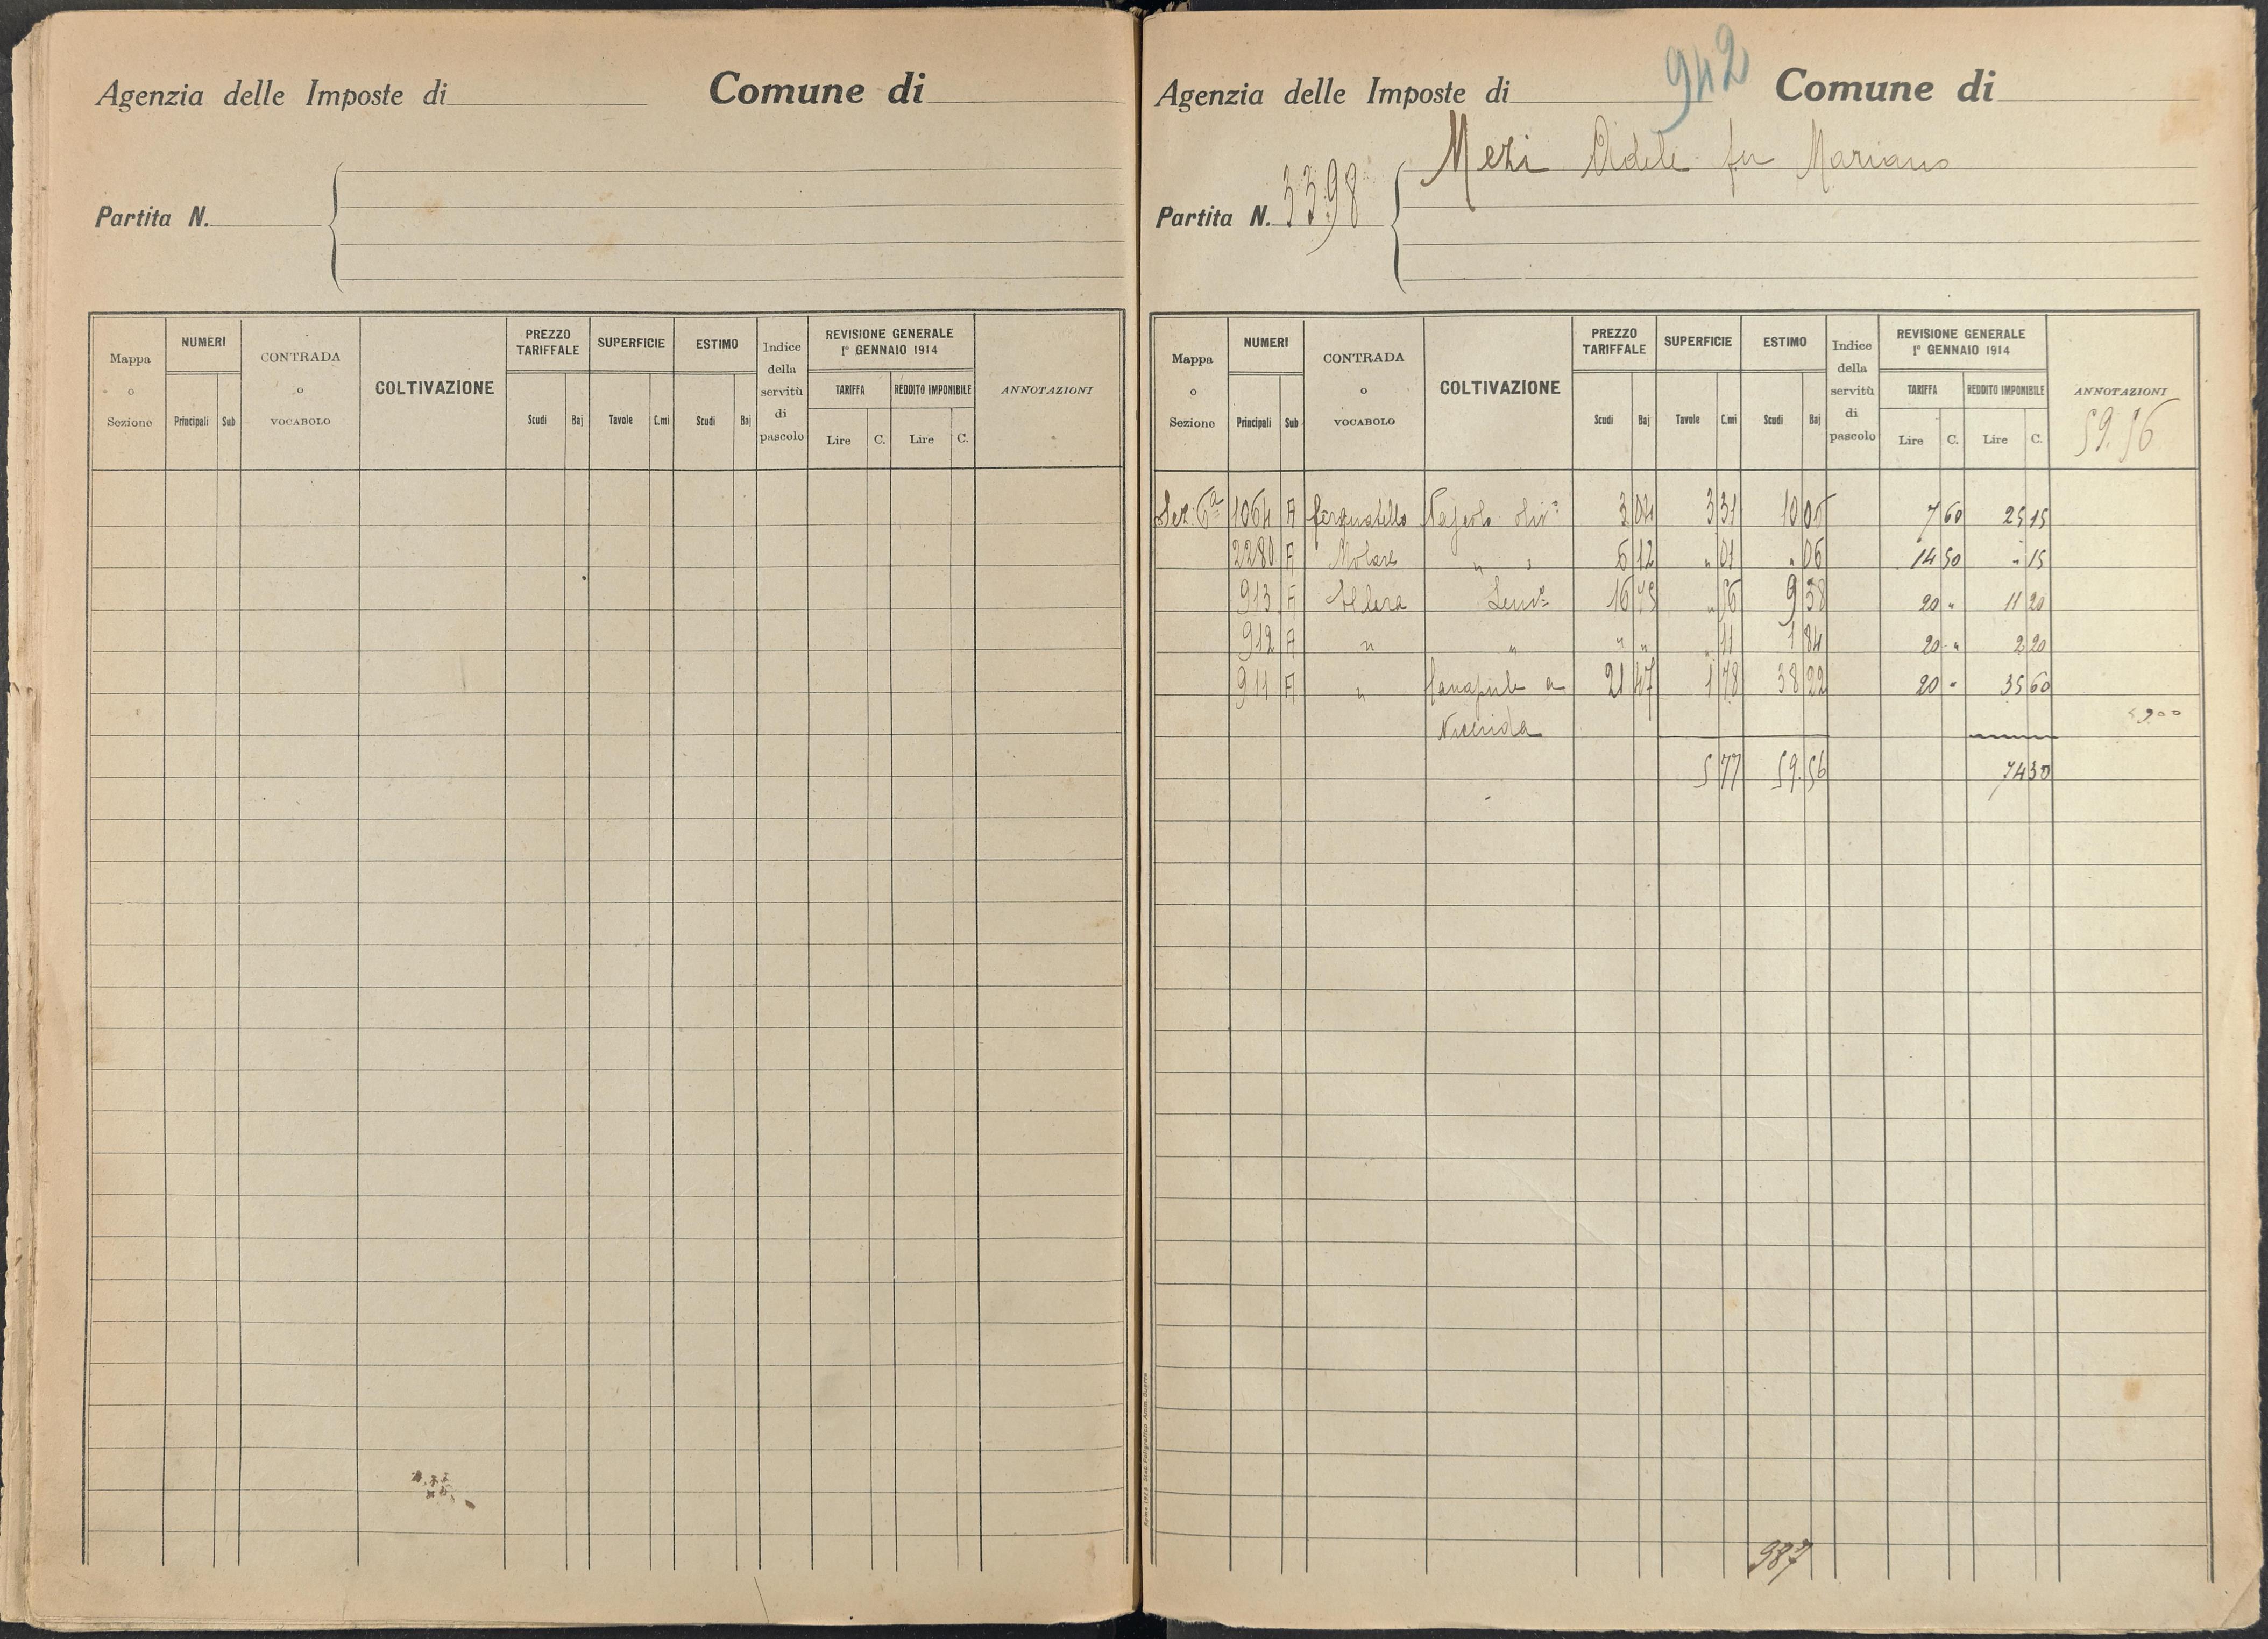 Agenzia delle Imposte di Comune di
Partita N.
Mappa o Sezione NUMERI Principali Sub CONTRADA o VOCABOLO COLTIVAZIONE PREZZO TARIFFALE Scudi Baj SUPERFICIE Tavole C.mi ESTIMO Scudi Baj Indice della servitù di pascolo REVISIONE GENERALE 1° GENNAIO 1914 TARIFFA Lire C. REDDITO IMPONIBILE Lire C. ANNOTAZIONI
942
Agenzia delle Imposte di Comune di
Mezi Adele fu Mariano
Partita N. 3398
Mappa o Sezione NUMERI Principali Sub CONTRADA o VOCABOLO COLTIVAZIONE PREZZO TARIFFALE Scudi Baj SUPERFICIE Tavole C.mi ESTIMO Scudi Baj Indice della servitù di pascolo REVISIONE GENERALE 1° GENNAIO 1914 TARIFFA Lire C. REDDITO IMPONIBILE Lire C. ANNOTAZIONI
59.56
Sez. 6ª 1064 A 3 04 3 31 10 06 7 60 25 15
2280 A Molare " " 6 12 " 01 " 06 14 50 " 15
913 A Semve 16 75 " 56 9 38 20 " 11 20
912 A " " " " " 11 1 84 20 " 2 20
911 A " Canapule a 21 47 1 78 38 22 20 " 35 60
Vicenda
5 77 59.56 74 30
987